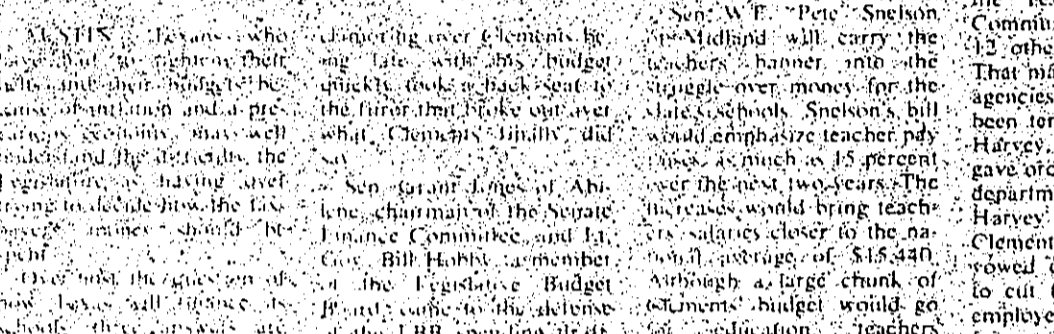 AUSTIN Texans who
have had to tighten their
belts and their budgets be-
cause of inflation and a pre-
carious economy may well
understand the the
Legislature is having over
trying to decide how the tax-
should be
spent
Over the question of
how Texas will finance its
schools three answers are
clamoring over Clements be-
ing late with his budget
quickly took a back seat to
the furor that broke out over
what Clements finally did
say
Sen. Grant Jones of Abi-
lene, chairman of the Senate
Finance Committee, and Lt.
Gov. Bill Hobby, a member
of the Legislative Budget
Board, came to the defense
of the LBB
Sen. W.E. "Pete" Snelson
of Midland will carry the
teachers' banner into the
struggle over money for the
state's schools. Snelson's bill
would emphasize teacher pay
raises as much as 15 percent
over the next two years. The
increases would bring teach-
ers' salaries closer to the na-
tional average of $15,440.
Although a large chunk of
Clements' budget would go
for education, teachers
the
Commun
12 othe
That ma
agencies
been ter
Harvey
gave ord
departm
Harvey
Clement
vowed
to cut
employe